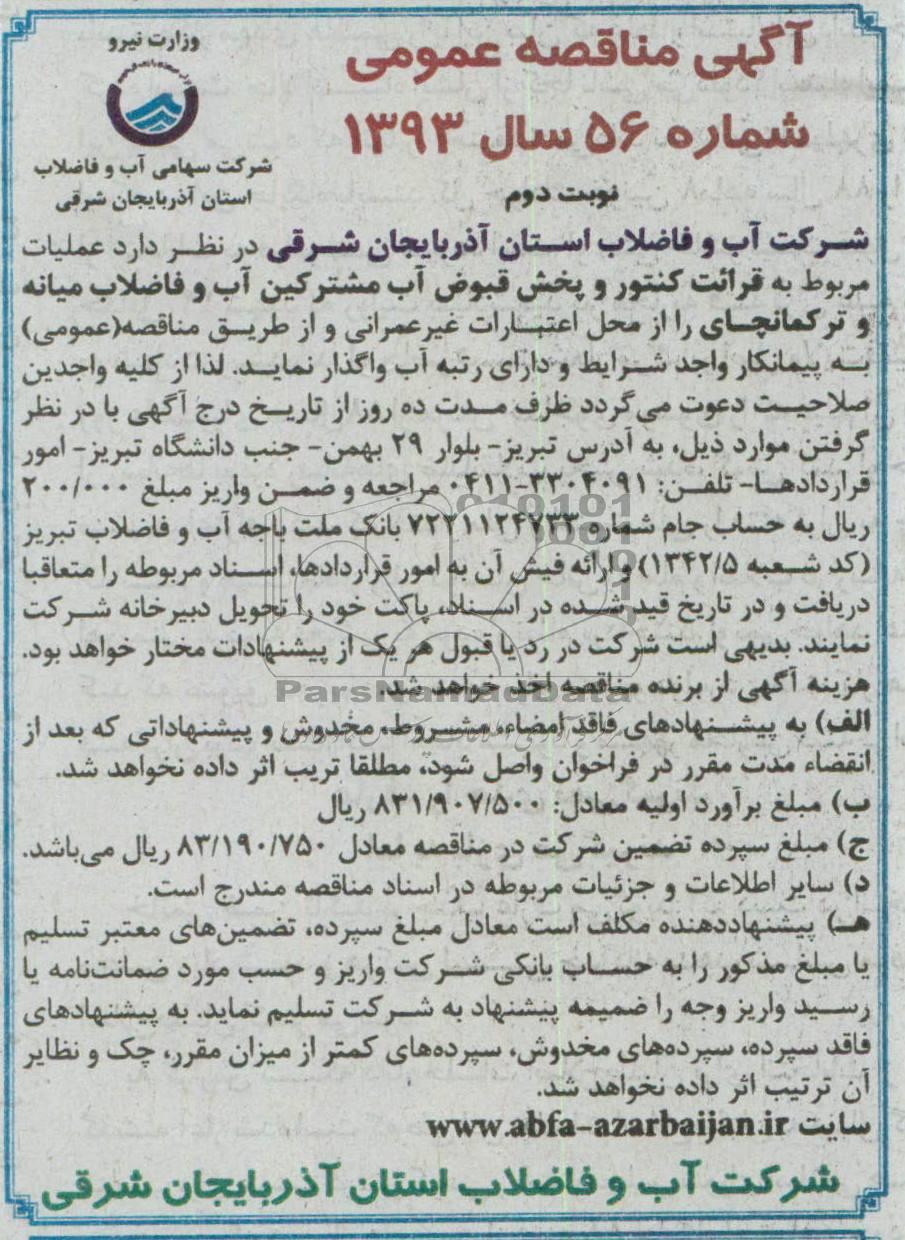 وزارت نیرو
شرکت سهامی آب و فاضلاب
استان آذربایجان شرقی
آگهی مناقصه عمومی
شماره ۵۶ سال ۱۳۹۳
نوبت دوم
شرکت آب و فاضلاب استان آذربایجان شرقی در نظر دارد عملیات
مربوط به قرائت کنتور و پخش قبوض آب مشترکین آب و فاضلاب میانه
و ترکمانچای را از محل اعتبارات غیرعمرانی و از طریق مناقصه(عمومی)
به پیمانکار واجد شرایط و دارای رتبه آب واگذار نماید. لذا از کلیه واجدین
صلاحیت دعوت می‌گردد ظرف مدت ده روز از تاریخ درج آگهی با در نظر
گرفتن موارد ذیل، به آدرس تبریز- بلوار ۲۹ بهمن- جنب دانشگاه تبریز- امور
قراردادها- تلفن: ۳۳۰۴۰۹۱-۰۴۱۱ مراجعه و ضمن واریز مبلغ ۲۰۰/۰۰۰
ریال به حساب جام شماره ۷۲۲۱۱۲۴۷۳۳ بانک ملت باجه آب و فاضلاب تبریز
(کد شعبه ۱۳۴۲/۵) و ارائه فیش آن به امور قراردادها، اسناد مربوطه را متعاقبا
دریافت و در تاریخ قید شده در اسناد، پاکت خود را تحویل دبیرخانه شرکت
نمایند. بدیهی است شرکت در رد یا قبول هر یک از پیشنهادات مختار خواهد بود.
هزینه آگهی از برنده مناقصه اخذ خواهد شد.
ParsNamadData
الف) به پیشنهادهای فاقد امضاء، مشروط، مخدوش و پیشنهاداتی که بعد از
انقضاء مدت مقرر در فراخوان واصل شود، مطلقا تریب اثر داده نخواهد شد.
ب) مبلغ برآورد اولیه معادل: ۸۳۱/۹۰۷/۵۰۰ ریال
ج) مبلغ سپرده تضمین شرکت در مناقصه معادل ۸۳/۱۹۰/۷۵۰ ریال می‌باشد.
د) سایر اطلاعات و جزئیات مربوطه در اسناد مناقصه مندرج است.
هـ) پیشنهاددهنده مکلف است معادل مبلغ سپرده، تضمین‌های معتبر تسلیم
یا مبلغ مذکور را به حساب بانکی شرکت واریز و حسب مورد ضمانت‌نامه یا
رسید واریز وجه را ضمیمه پیشنهاد به شرکت تسلیم نماید. به پیشنهادهای
فاقد سپرده، سپرده‌های مخدوش، سپرده‌های کمتر از میزان مقرر، چک و نظایر
آن ترتیب اثر داده نخواهد شد.
سایت www.abfa-azarbaijan.ir
شرکت آب و فاضلاب استان آذربایجان شرقی